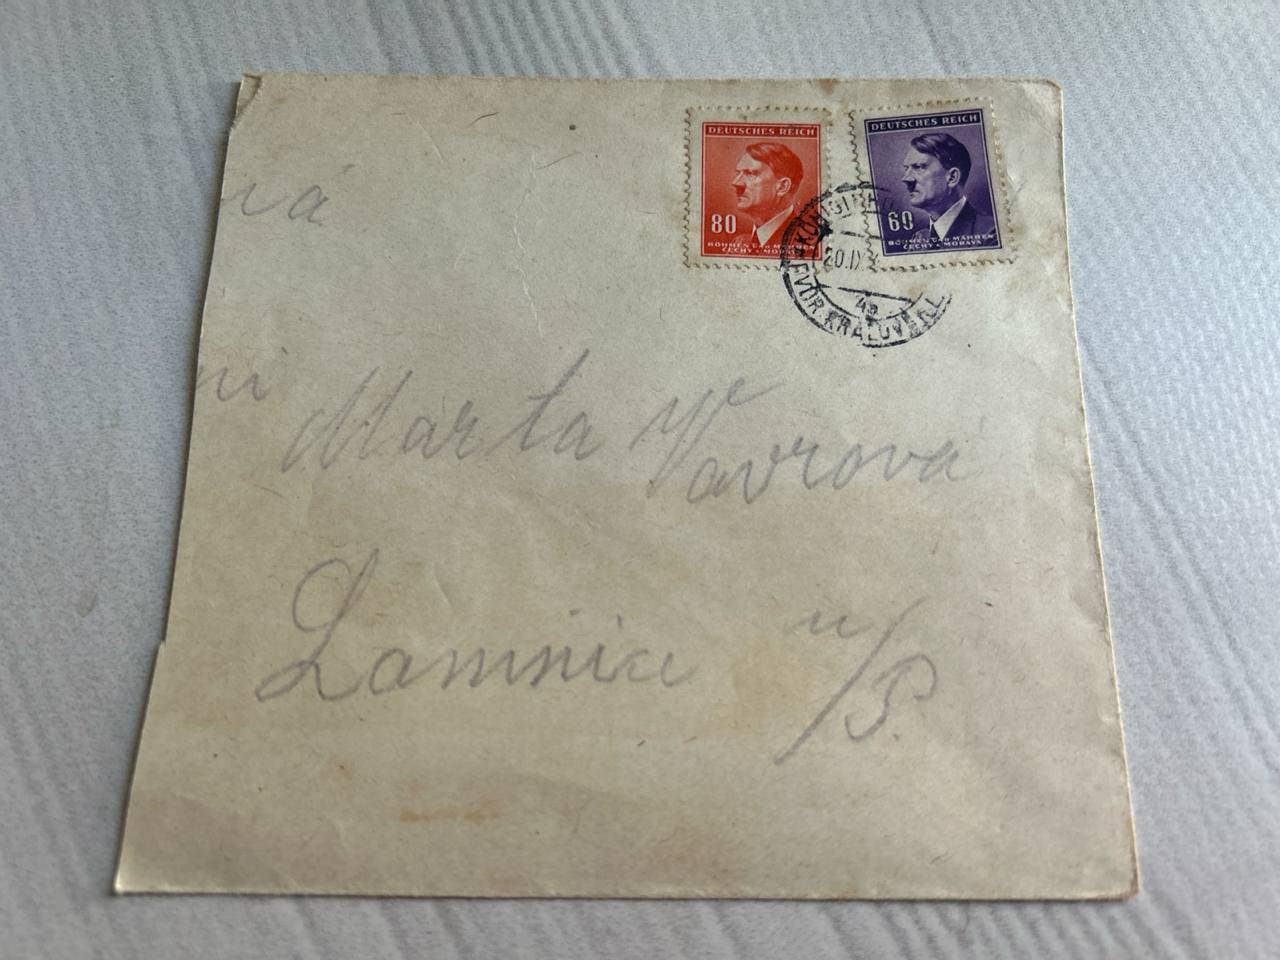 DEUTSCHES REICH
80
BÖHMEN und MÄHREN
ČECHY a MORAVA
DEUTSCHES REICH
60
BÖHMEN und MÄHREN
ČECHY a MORAVA
20.IX
DVŮR KRÁLOVÉ
vá
Marta Vavrová
Lomnice n/P.